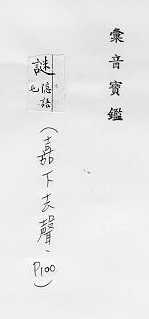 彙音寶鑑
謎
隱語
也
(嘉下去聲、P100)